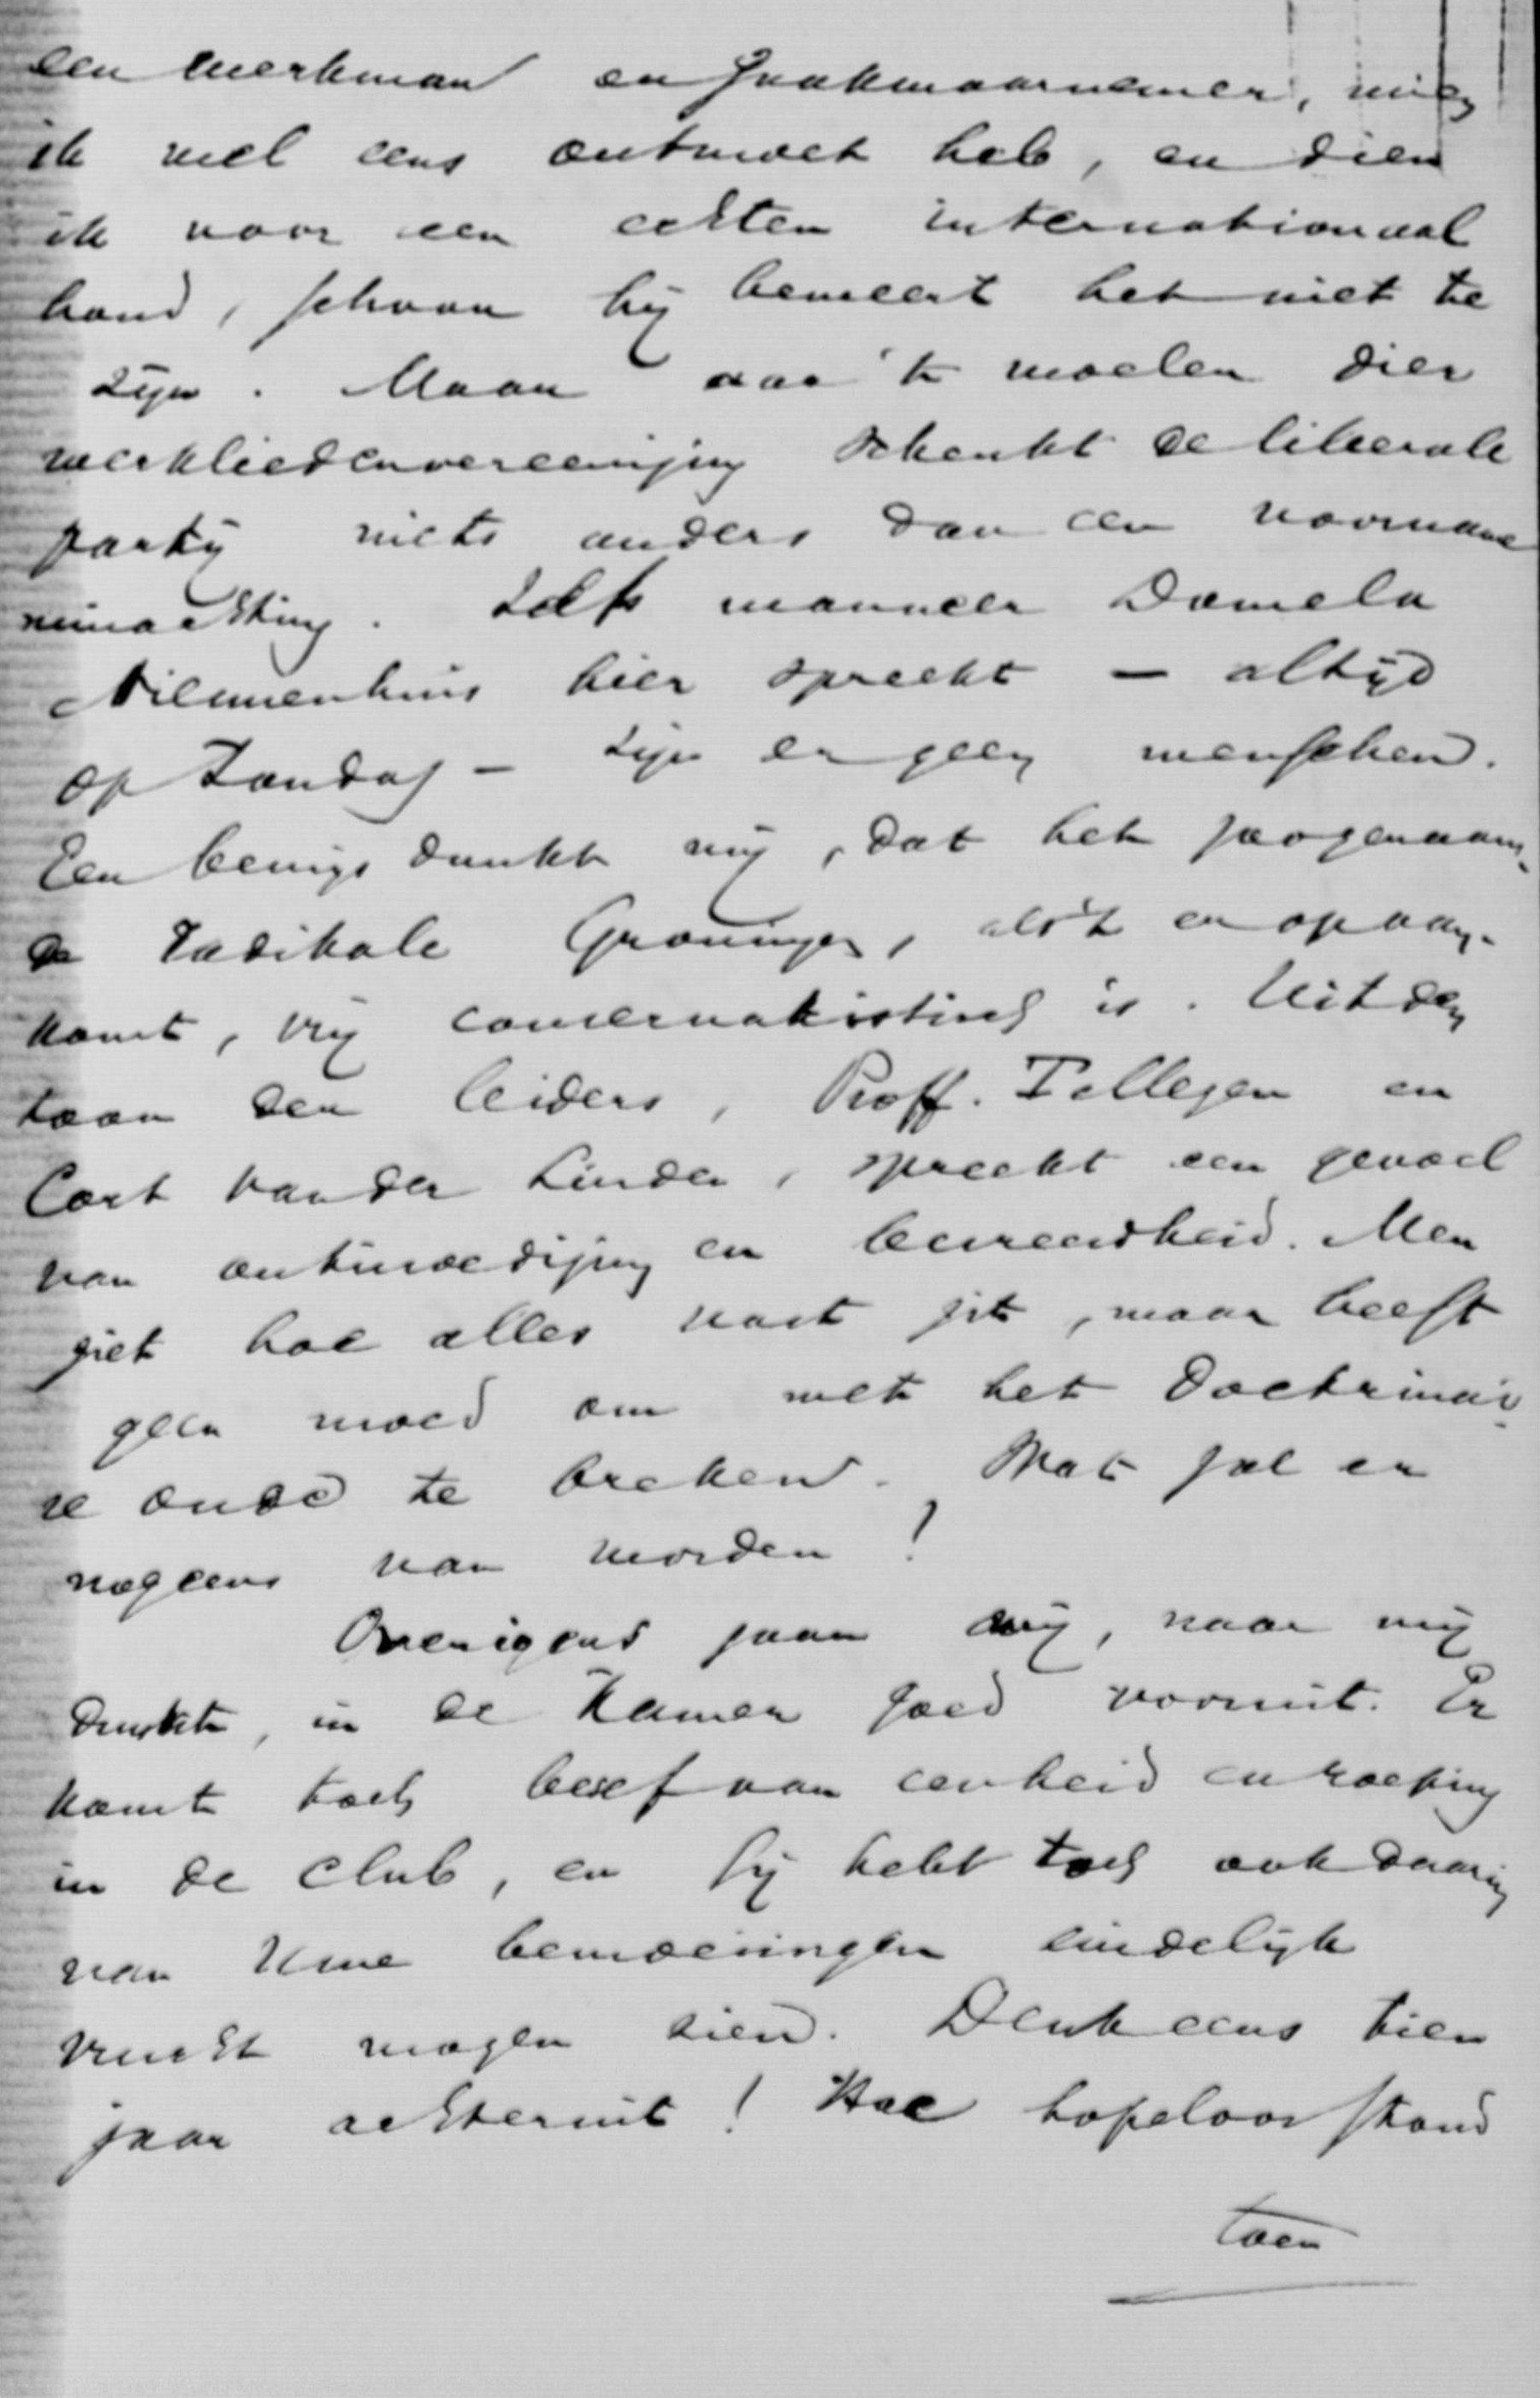 een werkman en zaakwaarnemer, wien
ik wel eens ontmoet heb, en dien
ik voor een echten internationaal
houd, schoon hij beweert het niet te
zijn. Maar aan 't woelen dier
werkliedenvereeniging schenkt de liberale
partij niets anders dan een voorname
minachting. Zelfs wanneer Domela
Nieuwenhuis hier spreekt – altijd
op Zondag – zijn er geen menschen.
Een bewijs dunkt mij, dat het zoogenaam-
de radikale Groningen, als 't er op aan-
komt, vrij conservatistisch is. Uit den
toon der leiders, Proff. Tellegen en
Cort van der Linden, spreekt een gevoel
van ontmoediging en bevreesdheid. Men
ziet hoe alles vast zit, maar heeft
geen moed om met het doctrinai-
re oude te breken. Wat zal er
nog eens van worden!
Overigens gaan wij, naar mij
dunkt, in de Kamer goed vooruit. Er
komt toch besef van eenheid en roeping
in de club, en gij hebt toch ook daarin
van Uwe bemoeiingen eindelijk
vrucht mogen zien. Denk eens tien
jaar achteruit! Hoe hopeloos stond
toen